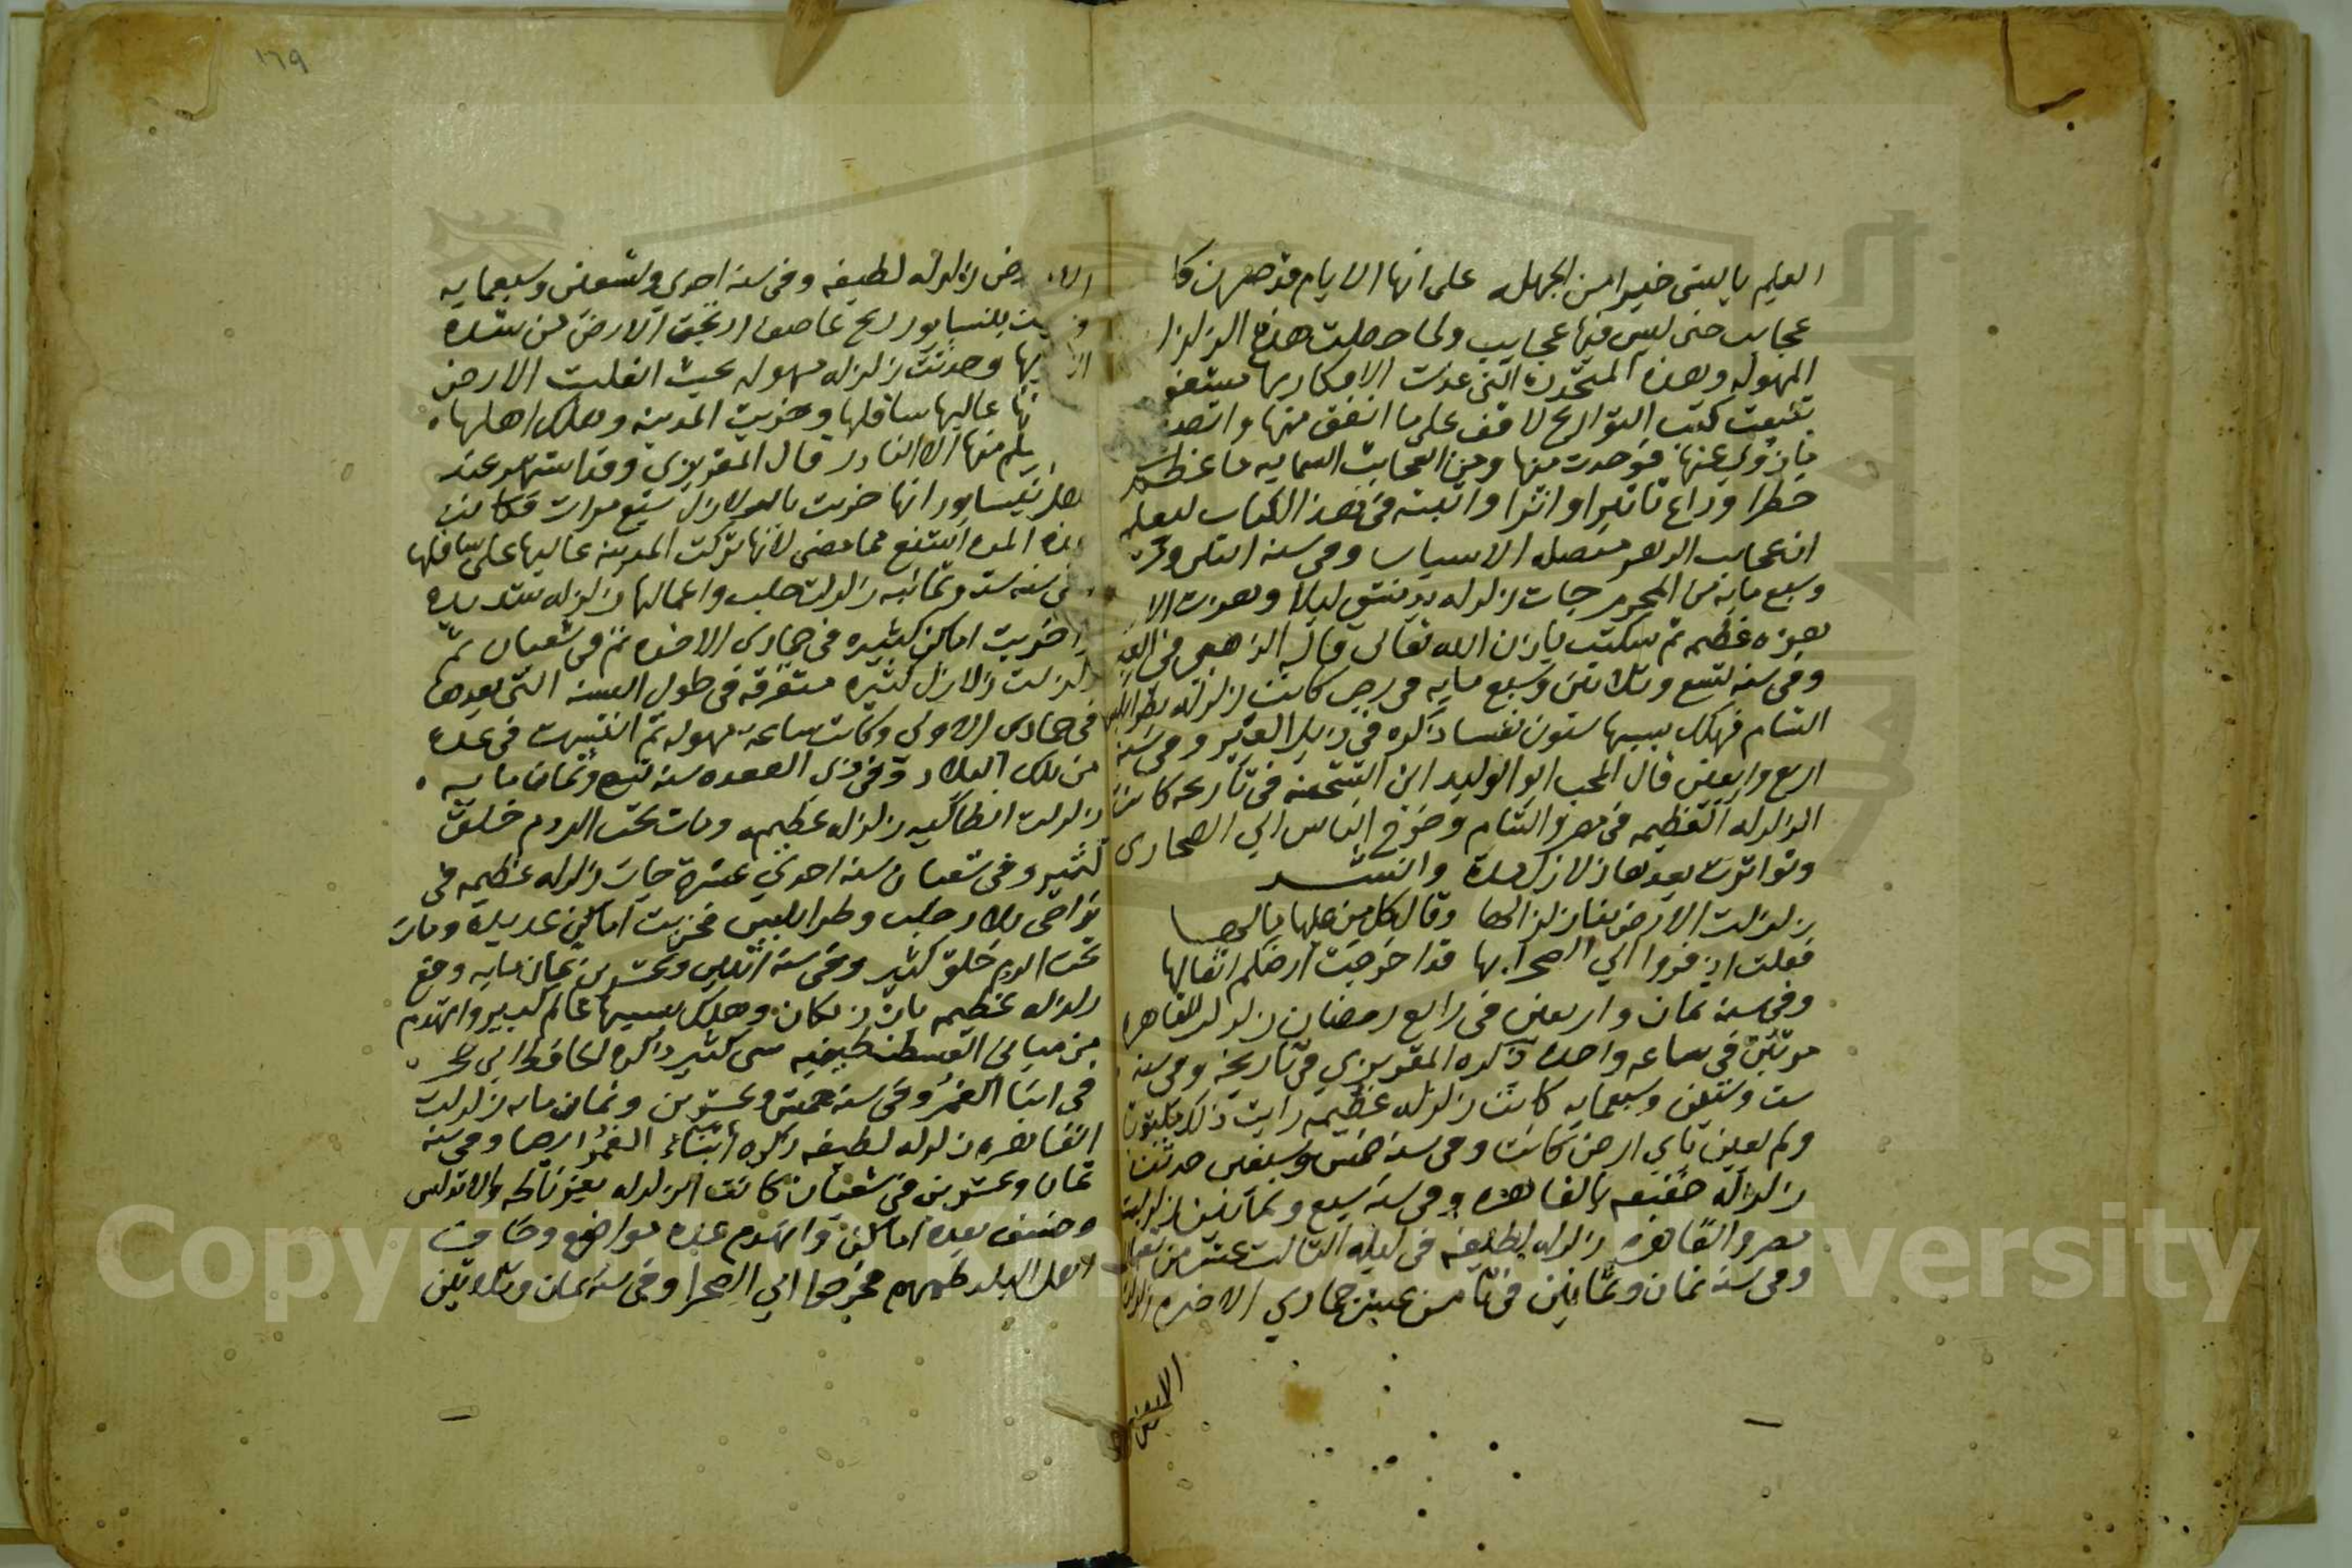 العلم بالشى خيرا من الجهل على انها الايام قد صرن كلها
عجايب حتى ليس فيها عجايب ولما حصلت هذه الزلزله
المهوله وهذه المتجدده التى غدت الافكار بها
تتبعت كتب التواريخ لاقف على ما اتفق منها
فوجدت منها ومن العجايب السمايه ما عظم
خطرا وراع تاثيرا واثرا واثبته فى هذا الكتاب ليعلم
ان عجايب الدهر متصله الاسباب وفى سنه اثنى
وسبع مايه من المحرم جات زلزله بدمشق ليلا وهزت الا
هزه عظيمه ثم سكتت باذن الله تعالى قاله الذهبى فى
وفى سنه تسع وثلاثين وسبع مايه فى رجب كانت زلزله بطرابلس
الشام فهلك بسببها ستون نفسا ذكره فى ذيل العبر وفى سنه
اربع واربعين قال المحب ابو الوليد ابن الشحنه فى تاريخه كانت
الزلزله العظيمه فى مصر والشام وخرج الناس الي الصحارى
وتواترت بعدها زلازل مدة وانشد
زلزلت الارض بنا زلزالها وقال كل من عليها مالها
فقلت اذ فروا الي الصحرا بها قد اخرجت ارضكم اثقالها
وفى سنه ثمان واربعين فى رابع رمضان زلزلت القاهره
مرتين فى ساعه واحدة ذكره المقريزي فى تاريخه وفى سنه
ست وستين وسبعمايه كانت زلزله عظيمه رايت ذلك مكتوبا
ولم يعين باي ارض كانت وفى سنه خمس وسبعين حدثت
زلزله خفيفه بالقاهره وفى سنه سبع وثمانين زلزلت
مصر والقاهره زلزله لطيفه فى ليله الثالث عشر من شعبان
وفى سنه ثمان وثمانين فى ثامن عشر جمادي الاخره زلزلت
الارض
الارض زلزله لطيفه وفى سنه احدى وتسعين وسبعمايه
بنيسابور ريح عاصف ارتجت الارض من شدة
وحدثت زلزله مهوله بحيث انقلبت الارض
عاليها سافلها وخربت المدينه وهلك اهلها
يسلم منها الا النادر قال المقريزي وقد اشتهر عند
اهل نيسابور انها خربت بالزلازل سبع مرات فكانت
هذه المره اشنع مما مضى لانها تركت المدينه عاليها على سافلها
وفى سنه ست وثمانمايه زلزلت حلب واعمالها زلزله شديده
اخربت اماكن كثيره فى جمادى الاخره ثم فى شعبان ثم
زلزلت زلازل كثيره متفرقه فى طول السنه التى بعدها
فى جمادى الاولى وكانت ساعة مهوله ثم انتبهت فى عده
من تلك البلاد وفى ذى القعده سنه تسع وثمان مايه
زلزلت انطاكيه زلزله عظيمه ومات تحت الردم خلق
كثير وفى شعبان سنه احدي عشرة جات زلزله عظيمه فى
نواحى بلاد حلب وطرابلس فخربت اماكن عديده ومات
تحت الردم خلق كثير وفى سنه اثنين وعشرين وثمان مايه وقع
زلزله عظيمه بارزنكان وهلك بسببها عالم كبير وانهدم
من مبانى القسطنطينيه شى كثير ذكره الحافظ ابن حجر
فى انبا الغمر وفى سنه خمس وعشرين وثمان مايه زلزلت
القاهره زلزله لطيفه ذكره انباء الغمر ايضا وفى سنه
ثمان وعشرين فى شعبان كانت الزلزله بغرناطه والاندلس
وخسف بعده اماكن وانهدم عده مواضع وخاف
اهل البلد كلهم فخرجوا الي الصحرا وفى سنه ثمان وثلاثين
١٦٩
Copyright © King Saud University